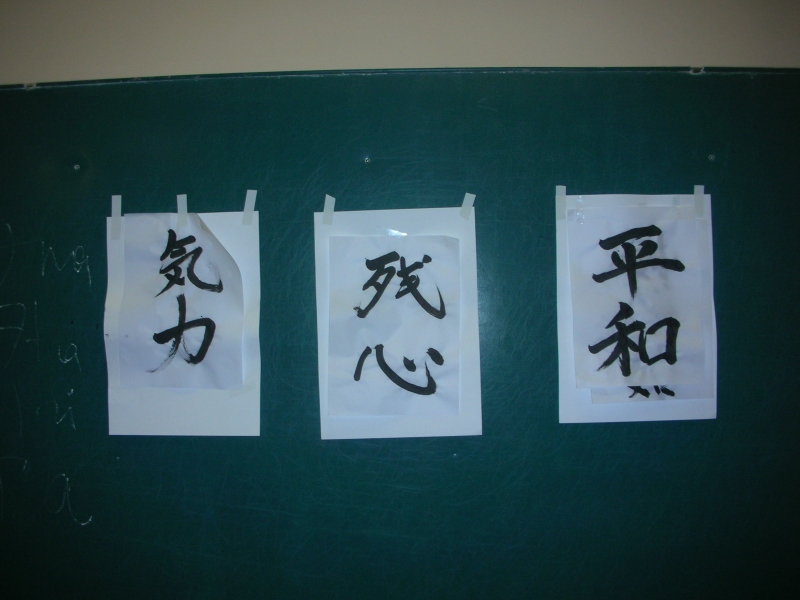 気力
残心
平和